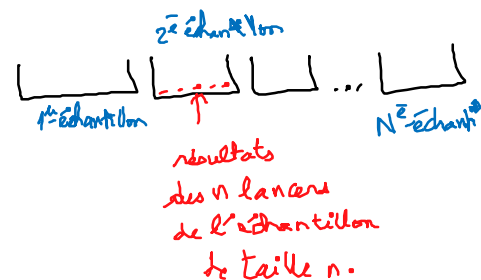 2è échantillon
1er échantillon
...
Nè-échant°
résultats
des n lancers
de l'échantillon
de taille n.